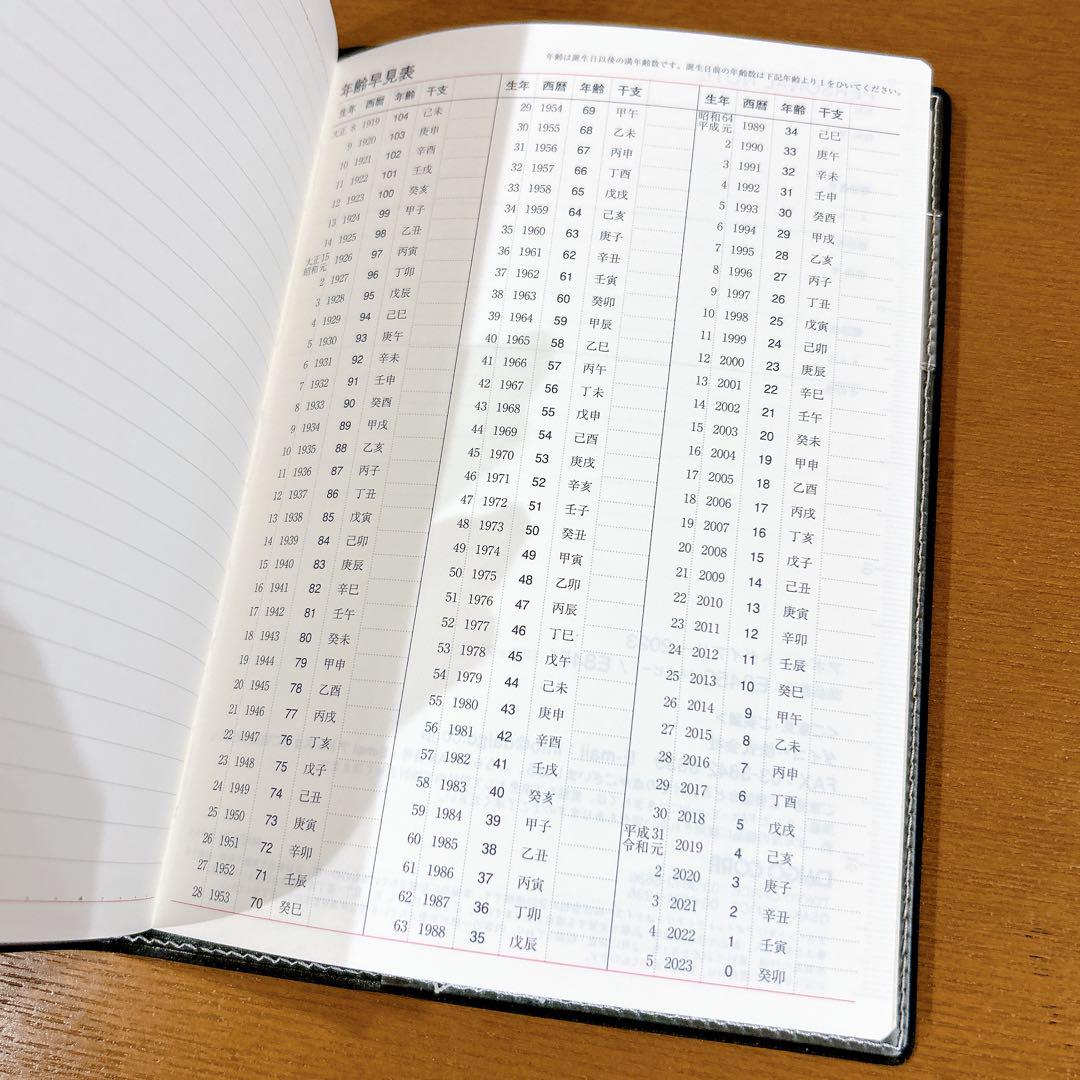 年齢早見表
年齢は誕生日以後の満年齢数です。誕生日前の年齢数は下記年齢より1をひいてください。
生年 西暦 年齢 干支
大正 8 1919 104 己未
9 1920 103 庚申
10 1921 102 辛酉
11 1922 101 壬戌
12 1923 100 癸亥
13 1924 99 甲子
14 1925 98 乙丑
大正15 昭和元 1926 97 丙寅
2 1927 96 丁卯
3 1928 95 戊辰
4 1929 94 己巳
5 1930 93 庚午
6 1931 92 辛未
7 1932 91 壬申
8 1933 90 癸酉
9 1934 89 甲戌
10 1935 88 乙亥
11 1936 87 丙子
12 1937 86 丁丑
13 1938 85 戊寅
14 1939 84 己卯
15 1940 83 庚辰
16 1941 82 辛巳
17 1942 81 壬午
18 1943 80 癸未
19 1944 79 甲申
20 1945 78 乙酉
21 1946 77 丙戌
22 1947 76 丁亥
23 1948 75 戊子
24 1949 74 己丑
25 1950 73 庚寅
26 1951 72 辛卯
27 1952 71 壬辰
28 1953 70 癸巳
生年 西暦 年齢 干支
29 1954 69 甲午
30 1955 68 乙未
31 1956 67 丙申
32 1957 66 丁酉
33 1958 65 戊戌
34 1959 64 己亥
35 1960 63 庚子
36 1961 62 辛丑
37 1962 61 壬寅
38 1963 60 癸卯
39 1964 59 甲辰
40 1965 58 乙巳
41 1966 57 丙午
42 1967 56 丁未
43 1968 55 戊申
44 1969 54 己酉
45 1970 53 庚戌
46 1971 52 辛亥
47 1972 51 壬子
48 1973 50 癸丑
49 1974 49 甲寅
50 1975 48 乙卯
51 1976 47 丙辰
52 1977 46 丁巳
53 1978 45 戊午
54 1979 44 己未
55 1980 43 庚申
56 1981 42 辛酉
57 1982 41 壬戌
58 1983 40 癸亥
59 1984 39 甲子
60 1985 38 乙丑
61 1986 37 丙寅
62 1987 36 丁卯
63 1988 35 戊辰
生年 西暦 年齢 干支
昭和64 平成元 1989 34 己巳
2 1990 33 庚午
3 1991 32 辛未
4 1992 31 壬申
5 1993 30 癸酉
6 1994 29 甲戌
7 1995 28 乙亥
8 1996 27 丙子
9 1997 26 丁丑
10 1998 25 戊寅
11 1999 24 己卯
12 2000 23 庚辰
13 2001 22 辛巳
14 2002 21 壬午
15 2003 20 癸未
16 2004 19 甲申
17 2005 18 乙酉
18 2006 17 丙戌
19 2007 16 丁亥
20 2008 15 戊子
21 2009 14 己丑
22 2010 13 庚寅
23 2011 12 辛卯
24 2012 11 壬辰
25 2013 10 癸巳
26 2014 9 甲午
27 2015 8 乙未
28 2016 7 丙申
29 2017 6 丁酉
30 2018 5 戊戌
平成31 令和元 2019 4 己亥
2 2020 3 庚子
3 2021 2 辛丑
4 2022 1 壬寅
5 2023 0 癸卯